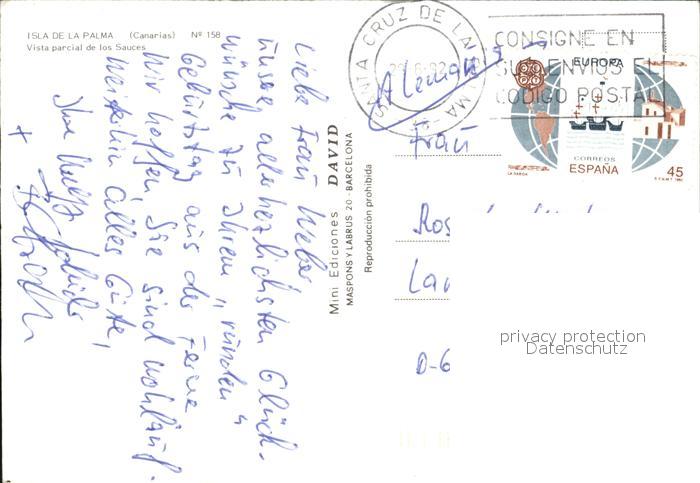 ISLA DE LA PALMA (Canarias) Nº 158
Vista parcial de los Sauces
Liebe Frau Weber,
unsere allerherzlichsten Glück-
wünsche zu Ihrem „runden“
Geburtstag aus der Ferne
Wir hoffen, Sie sind wohlauf.
Weiterhin alles Gute,
Ihre
+
Mini Ediciones DAVID
MASPONS Y LABRUS 20 - BARCELONA
Reproducción prohibida
SANTA CRUZ DE LA PALMA
CONSIGNE EN
SUS ENVIOS EL
CODIGO POSTAL
EUROPA
CORREOS
ESPAÑA
45
LA RABIDA
Alemania
Frau
Ros
Lan
D-6
privacy protection
Datenschutz